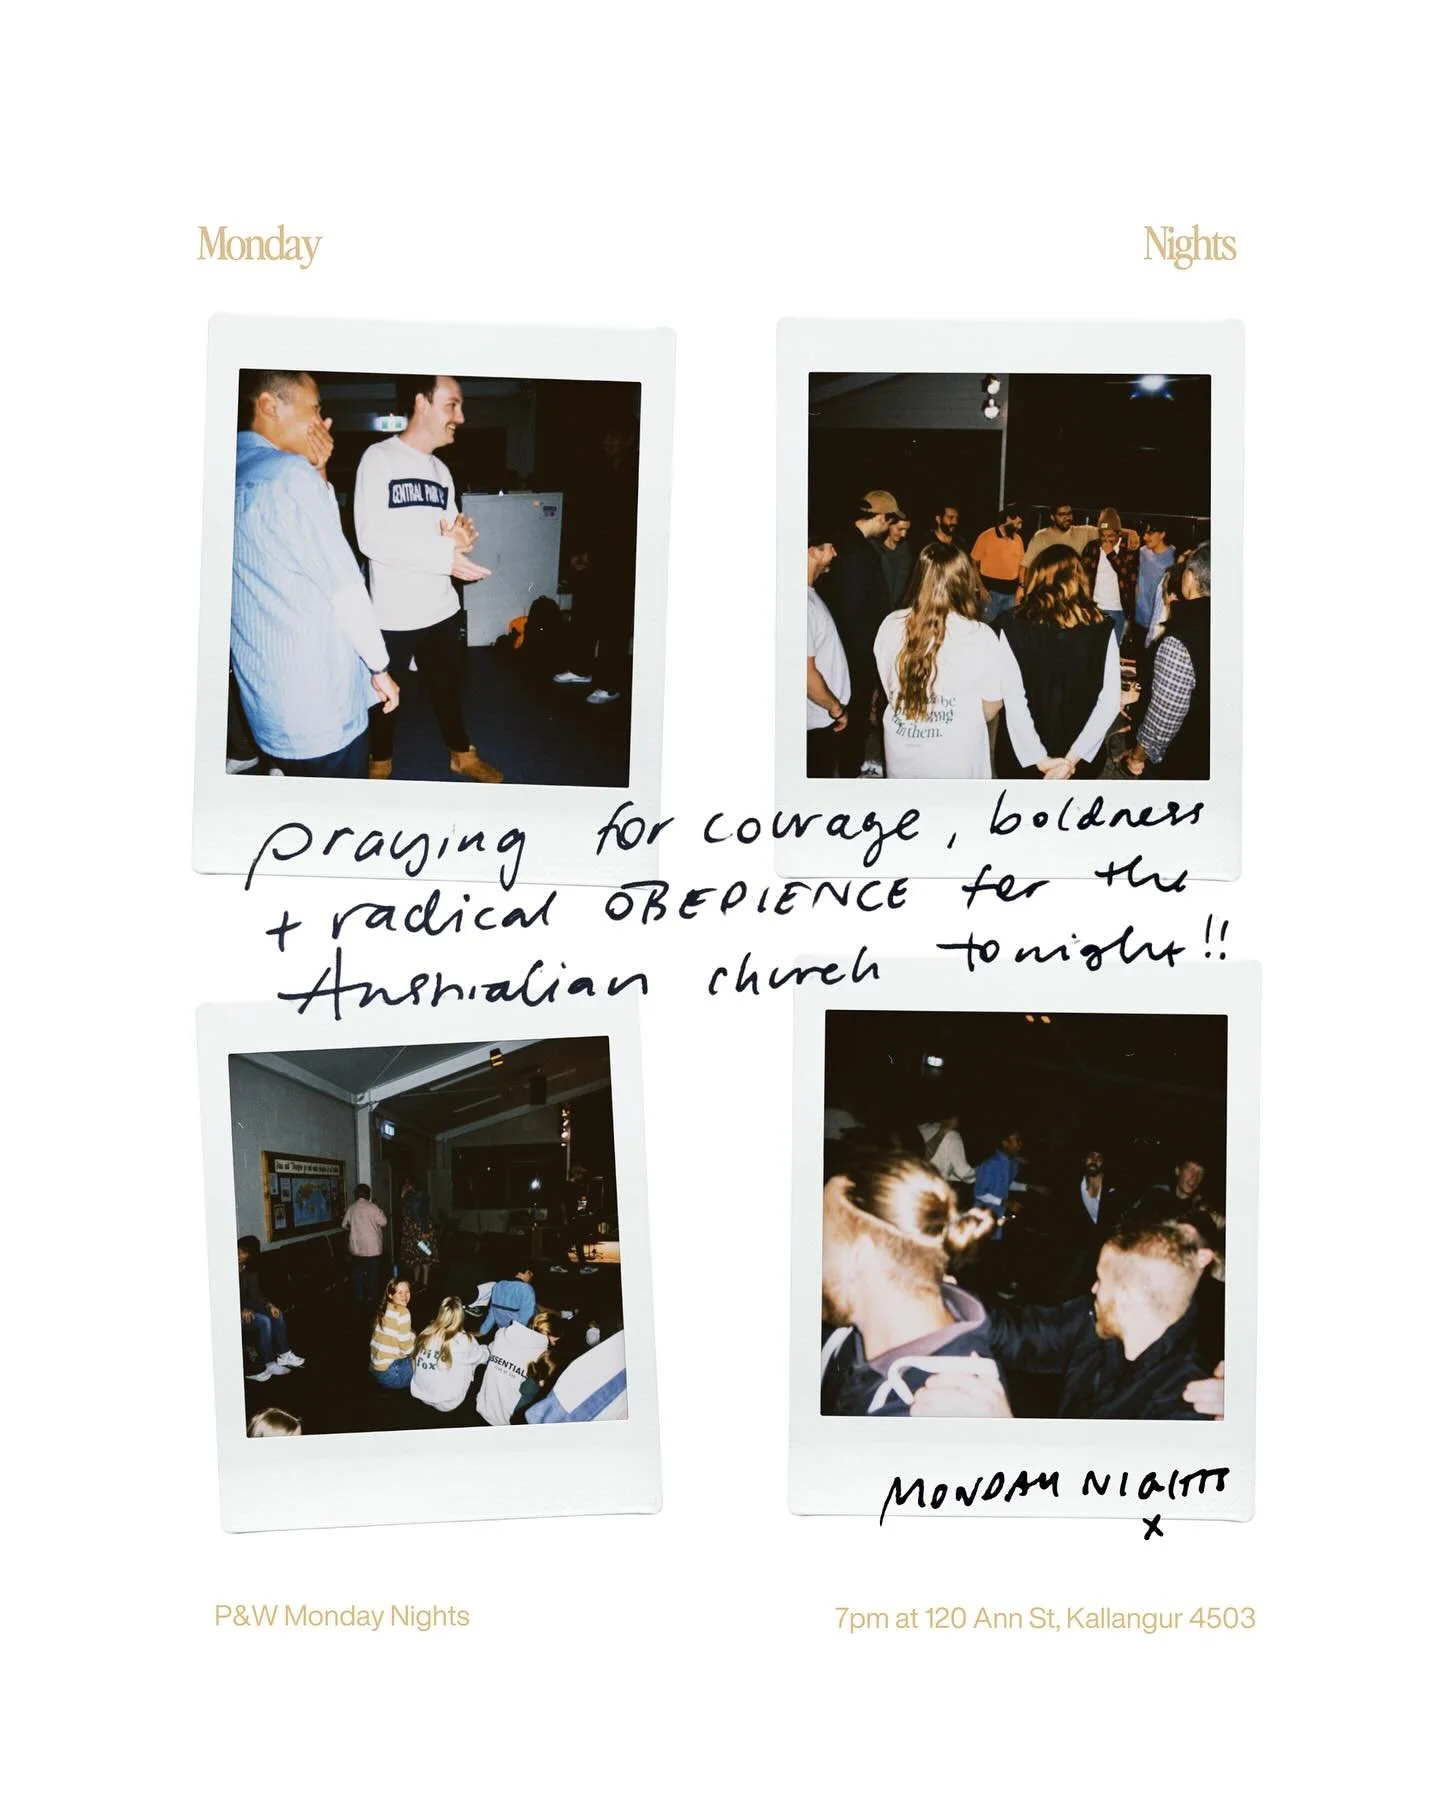 Monday Nights
CENTRAL PARK
be
them.
praying for courage, boldness
+ radical OBEDIENCE for the
Australian church tonight!!
fox
ESSENTIALS
MONDAY NIGHTS
x
P&W Monday Nights
7pm at 120 Ann St, Kallangur 4503